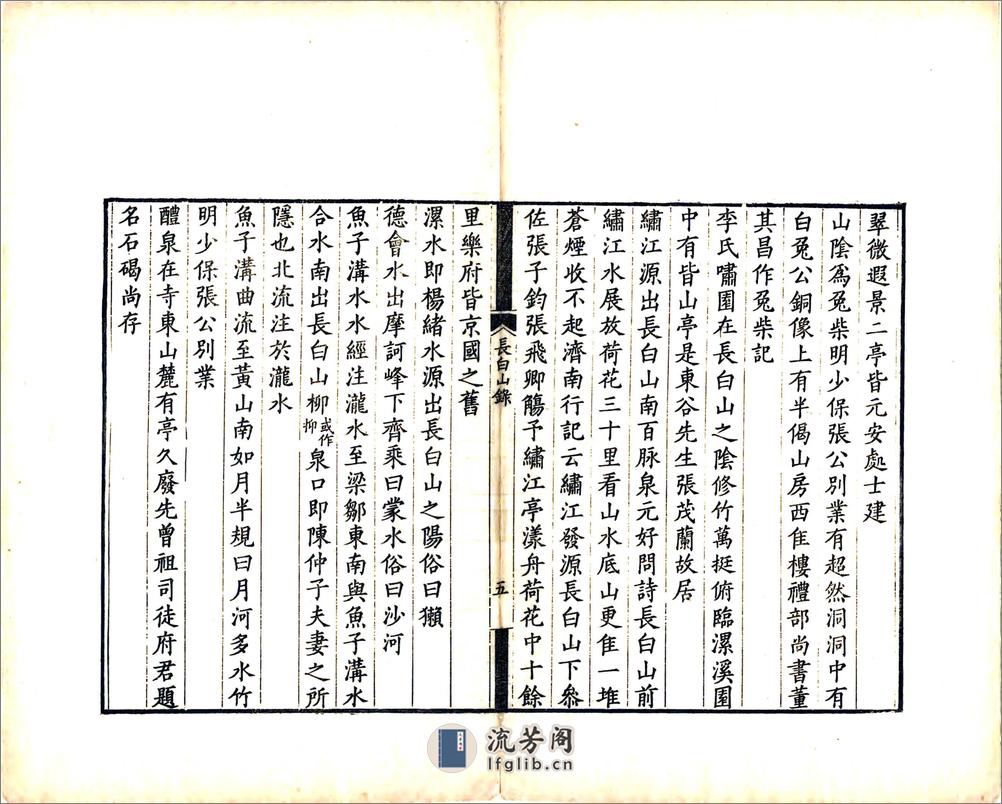 翠微遐景二亭皆元安處士建
山陰爲兔柴明少保張公別業有超然洞洞中有
白兔公銅像上有半偈山房西隹樓禮部尚書董
其昌作兔柴記
李氏嘯園在長白山之陰修竹萬挺俯臨漯溪園
中有皆山亭是東谷先生張茂蘭故居
繡江源出長白山南百脉泉元好問詩長白山前
繡江水展放荷花三十里看山水底山更隹一堆
蒼煙收不起濟南行記云繡江發源長白山下叅
佐張子鈞張飛卿觴予繡江亭漾舟荷花中十餘
長白山錄
五
里樂府皆京國之舊
漯水即楊緒水源出長白山之陽俗曰獺
德會水出摩訶峰下齊乘曰䝉水俗曰沙河
魚子溝水水經注瀧水至梁鄒東南與魚子溝水
合水南出長白山柳或作抑泉口即陳仲子夫妻之所
隱也北流注於瀧水
魚子溝曲流至黃山南如月半規曰月河多水竹
明少保張公別業
醴泉在寺東山麓有亭久廢先曾祖司徒府君題
名石碣尚存
流芳阁
lfglib.cn